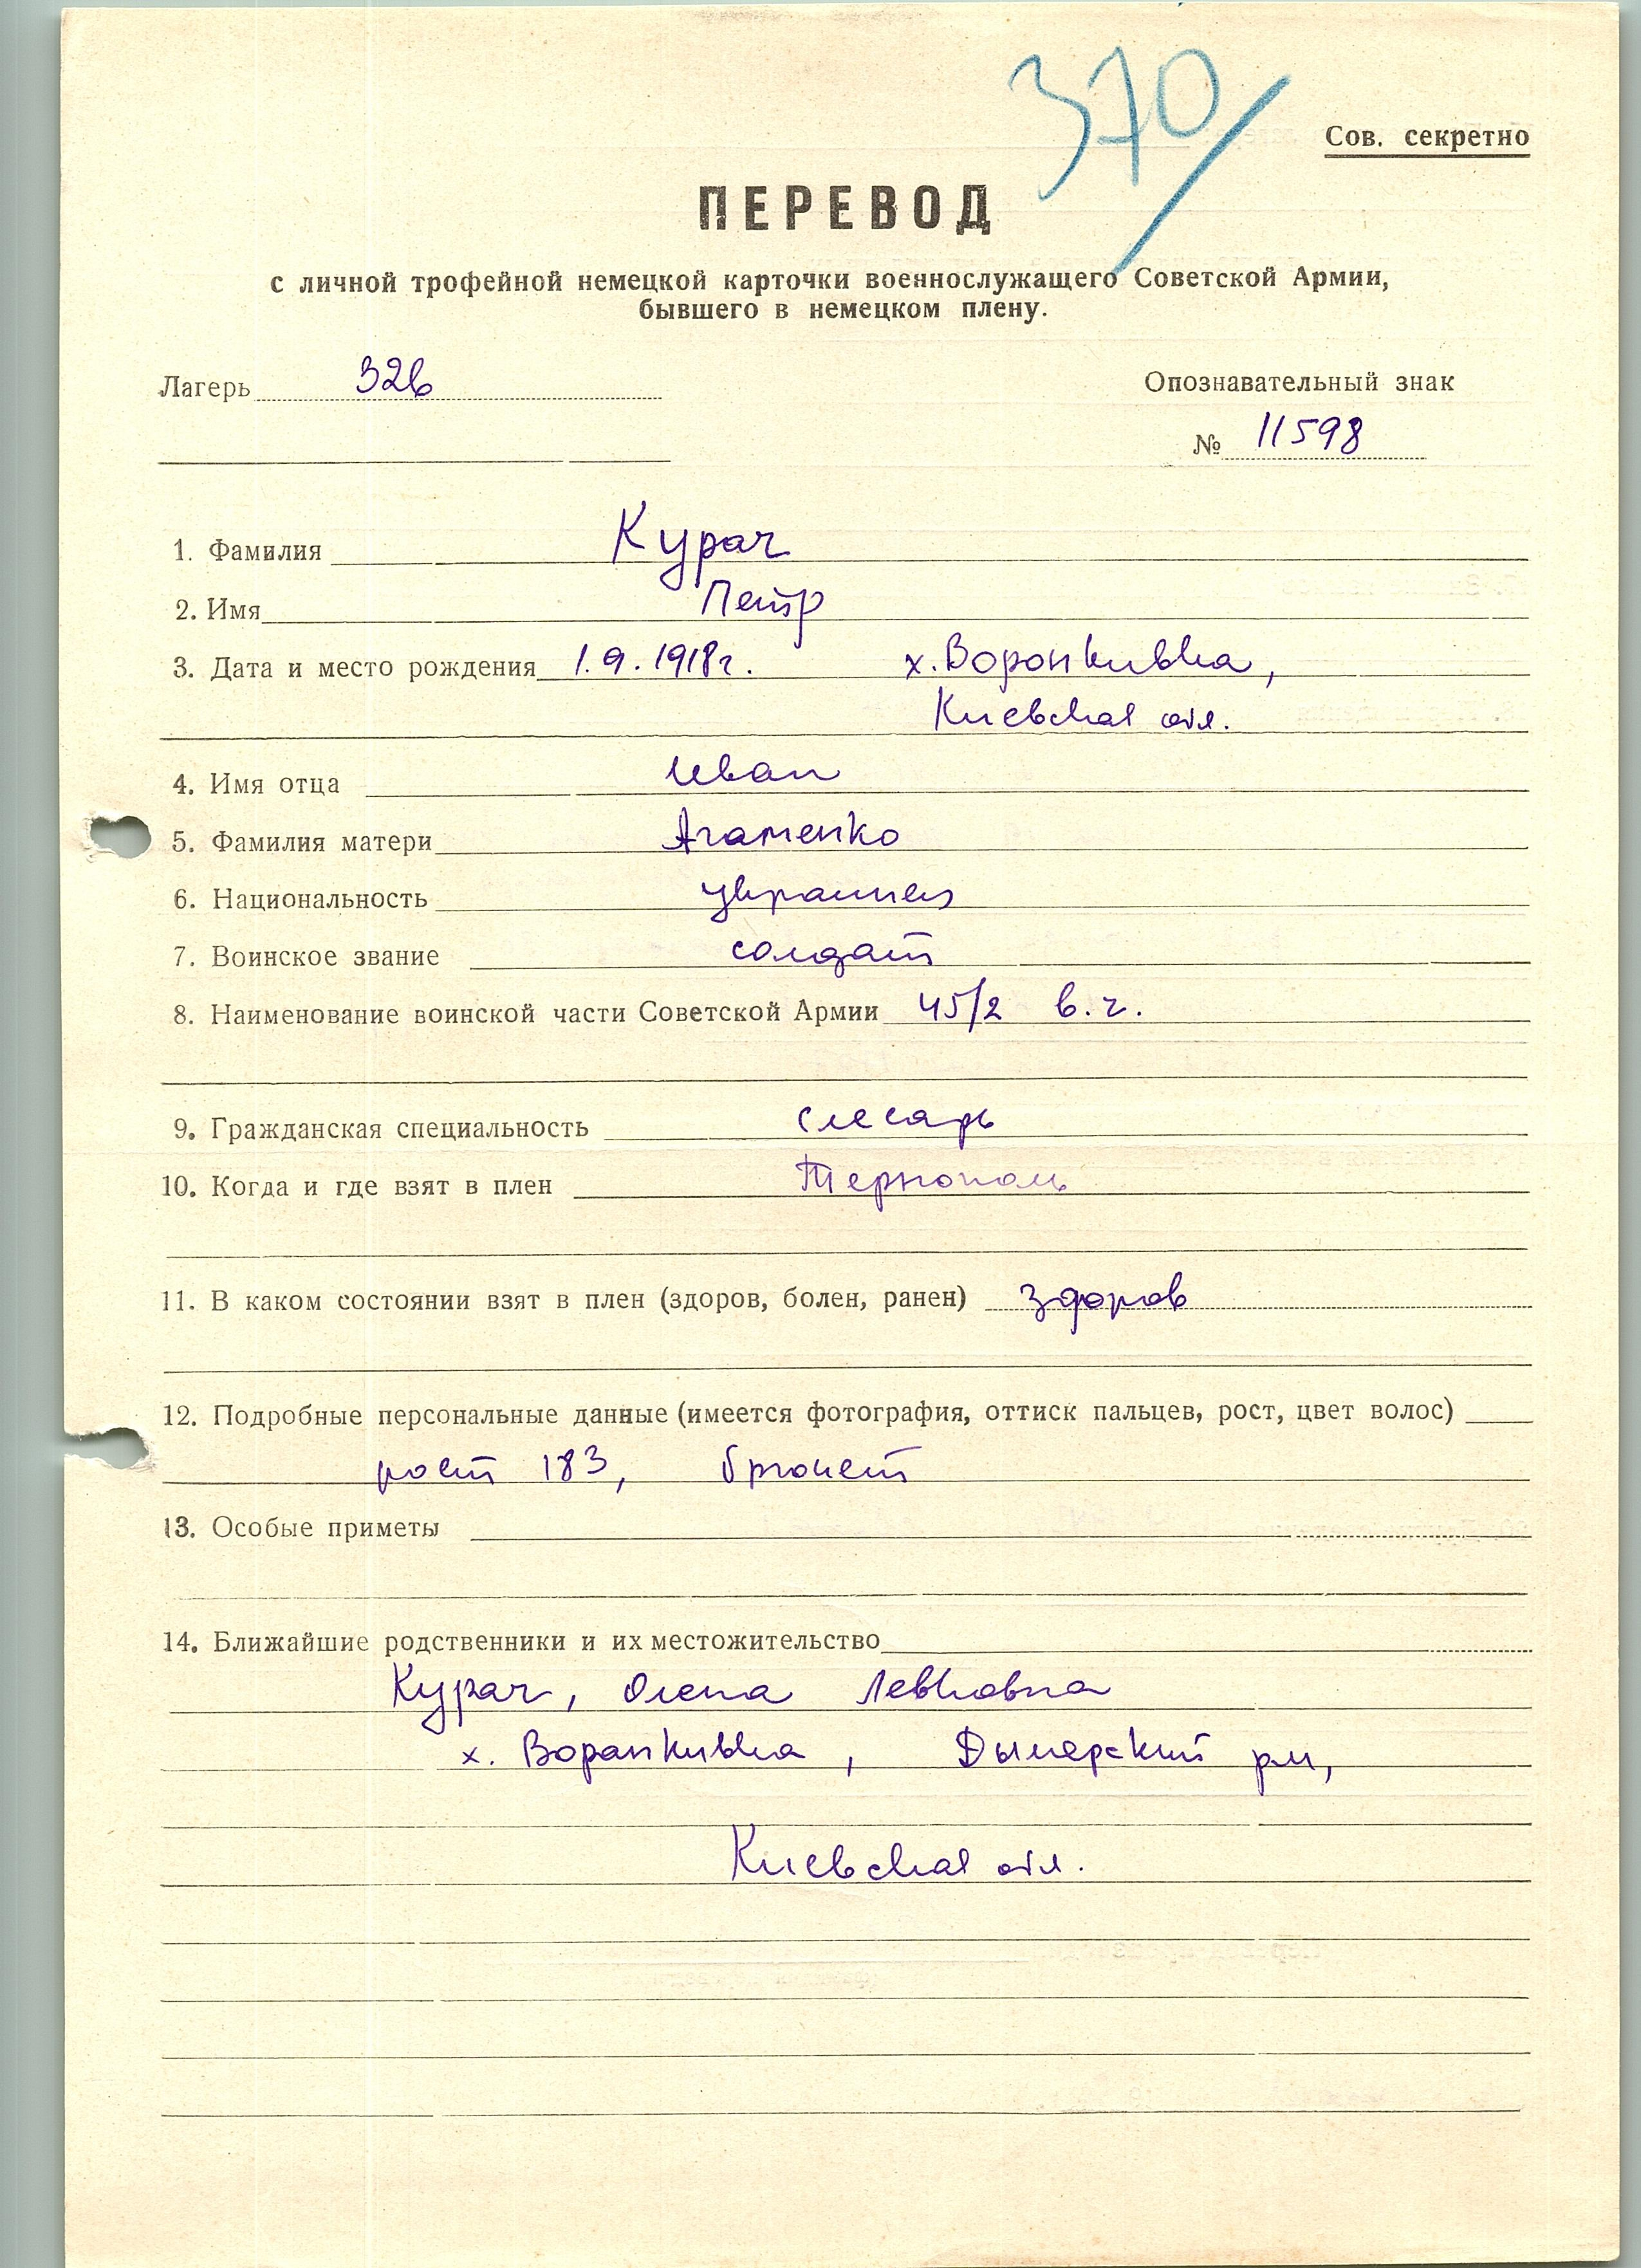 370
Сов. секретно
ПЕРЕВОД
с личной трофейной немецкой карточки военнослужащего Советской Армии,
бывшего в немецком плену.
Лагерь 326
Опознавательный знак
№ 11598
1. Фамилия Курач
2. Имя Петр
3. Дата и место рождения 1.9.1918г. х. Воронкивка,
Киевская обл.
4. Имя отца Иван
5. Фамилия матери Агаменко
6. Национальность украинец
7. Воинское звание солдат
8. Наименование воинской части Советской Армии 45/2 в.ч.
9. Гражданская специальность слесарь
10. Когда и где взят в плен Тернополь
11. В каком состоянии взят в плен (здоров, болен, ранен) здоров
12. Подробные персональные данные (имеется фотография, оттиск пальцев, рост, цвет волос)
рост 183, брюнет
13. Особые приметы
14. Ближайшие родственники и их местожительство
Курач, Олена Левковна
х. Воранкивка, Дымерский рн,
Киевская обл.